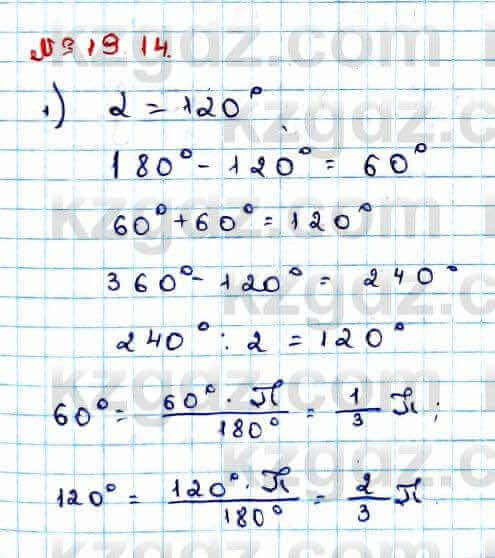 № 319 14.
1) 2 = 120°
180° - 120° = 60°
60° + 60° = 120°
360° - 120° = 240°
240° : 2 = 120°
60° = 60° · П / 180° = 1/3 П;
120° = 120° · П / 180° = 2/3 П
kzgdz.com